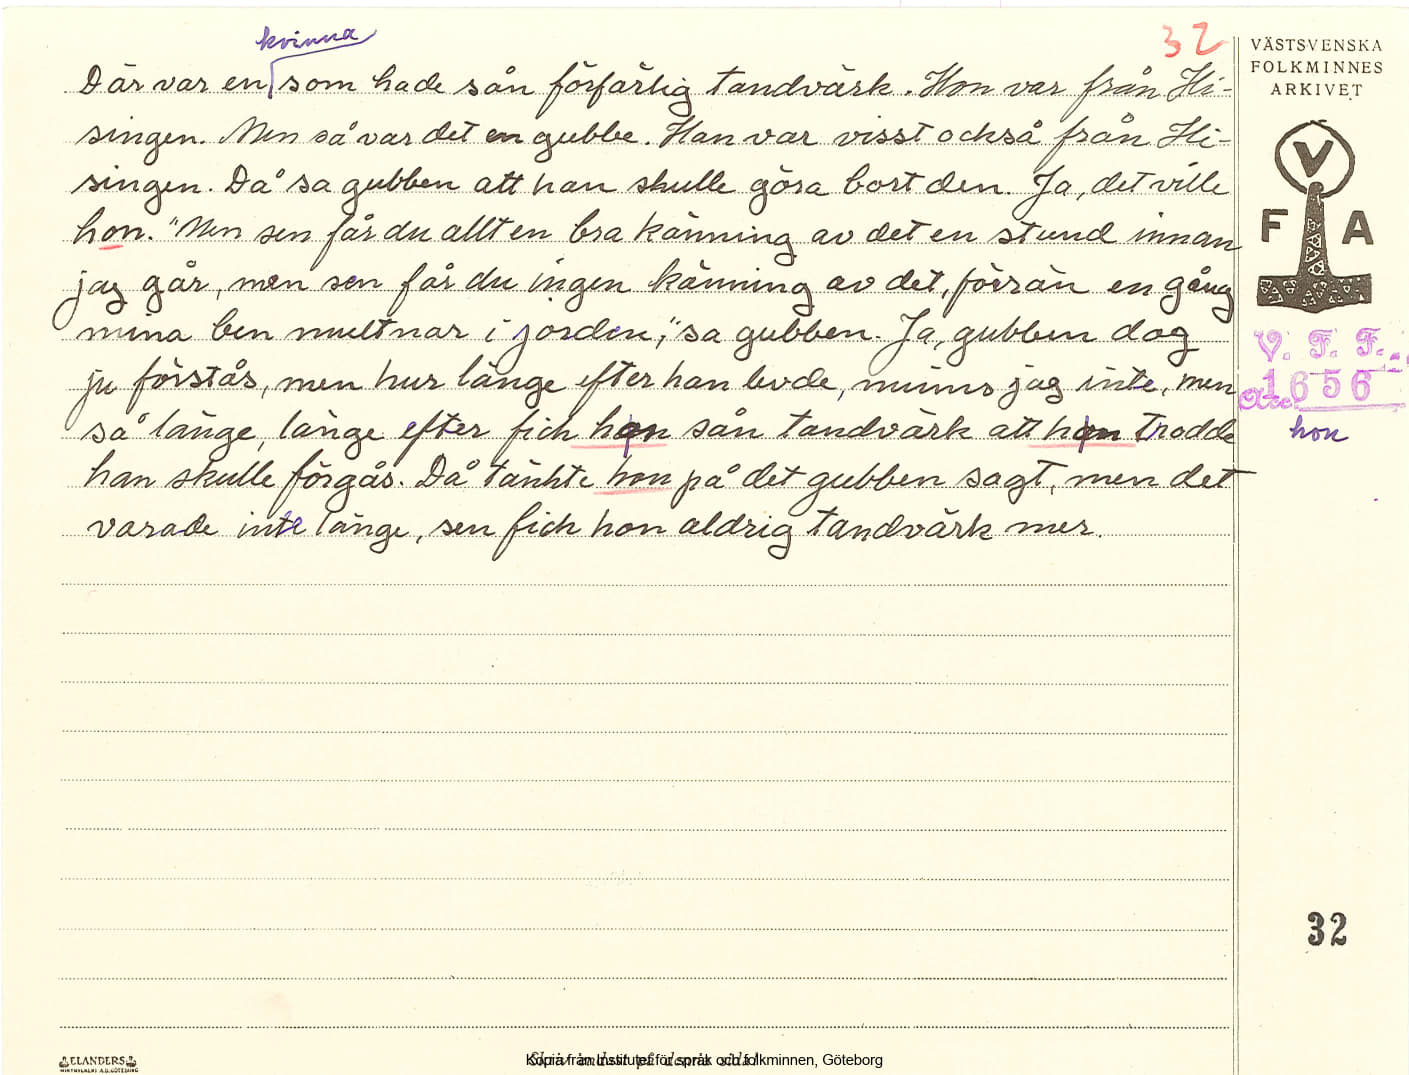 32
kvinna
Där var en som hade sån förfärlig tandvärk. Hon var från Hi-
singen. Men så var det en gubbe. Han var visst också från Hi-
singen. Då sa gubben att han skulle göra bort den. Ja, det ville
hon. "Men sen får du allt en bra känning av det en stund innan
jag går, men sen får du ingen känning av det, förrän en gång
mina ben multnar i jorden," sa gubben. Ja, gubben dog
ju förstås, men hur länge efter han levde, minns jag inte, men
så länge, länge efter fick hon sån tandvärk att hon trodde
han skulle förgås. Då tänkte hon på det gubben sagt, men det
varade inte länge, sen fick hon aldrig tandvärk mer.
VÄSTSVENSKA
FOLKMINNES
ARKIVET
V
F A
V. F. F.
Acc. 1656
hon
32
ELANDERS
Kopia från Institutet för språk och folkminnen, Göteborg